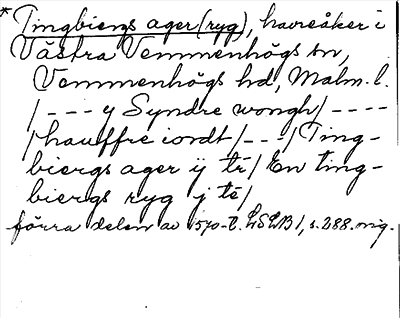 * Tingbiergs ager (ryg), havreåker i
Västra Vemmenhögs sn,
Vemmenhögs hd, Malm. l.
/--- y Syndre wongh/----
/hauffre iordt/---/Ting-
biergs ager ij té/ En ting-
biergs ryg j té/
förra delen av 1570-t. LSLB 1, s. 288. orig.